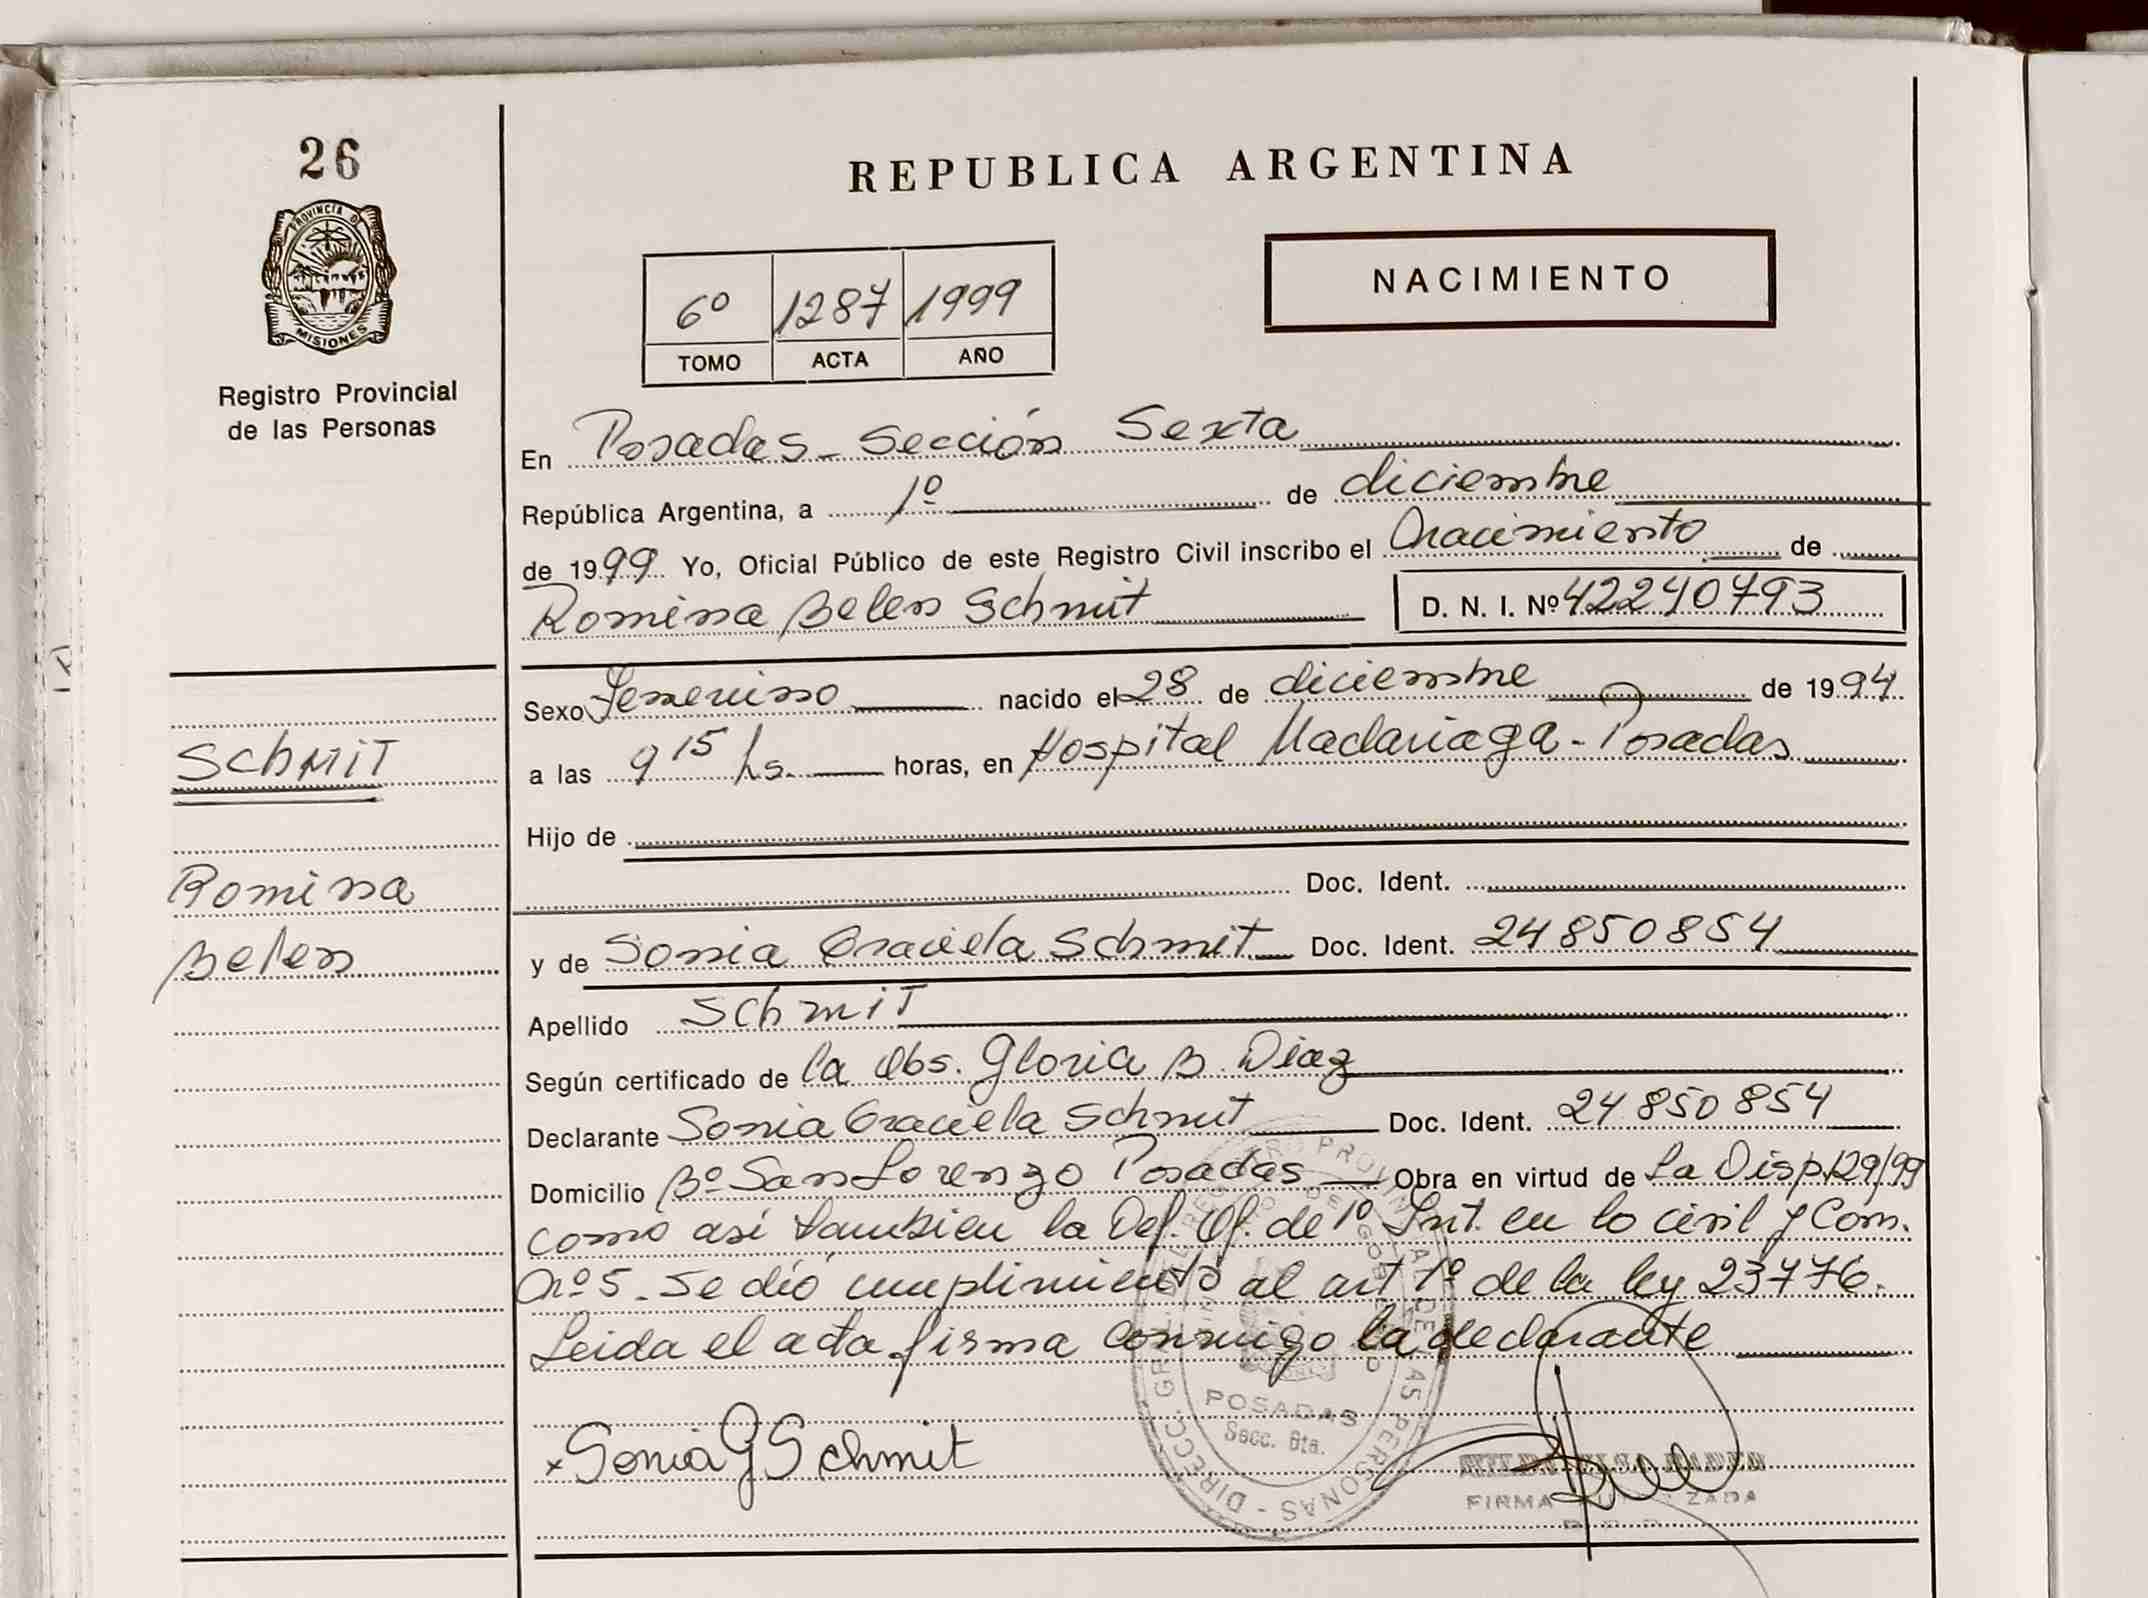 26
PROVINCIA DE
MISIONES
Registro Provincial
de las Personas
REPUBLICA ARGENTINA
NACIMIENTO
6º 1287 1999
TOMO ACTA AÑO
En Posadas - Sección Sexta
República Argentina, a 1º de diciembre
de 1999 Yo, Oficial Público de este Registro Civil inscribo el Nacimiento de
Romina Belen Schmit D. N. I. Nº 42240793
Sexo Femenino nacido el 28 de diciembre de 1994
a las 9 15 hs. horas, en Hospital Madariaga - Posadas
Hijo de
Doc. Ident.
y de Sonia Graciela Schmit Doc. Ident. 24850854
Apellido Schmit
Según certificado de la Obs. Gloria B. Diaz
Declarante Sonia Graciela Schmit Doc. Ident. 24850854
Domicilio Bº San Lorenzo Posadas Obra en virtud de La Disp. 129/99
como asi tambien la Def. Of. de 1º Inst. en lo civil y Com.
Nº 5. Se dió cumplimiento al art 1º de la ley 23776.
Leida el acta firma conmigo la declarante
x Sonia G Schmit
POSADAS
Secc. 6ta.
FIRMA
SCHMIT
Romina
Belen